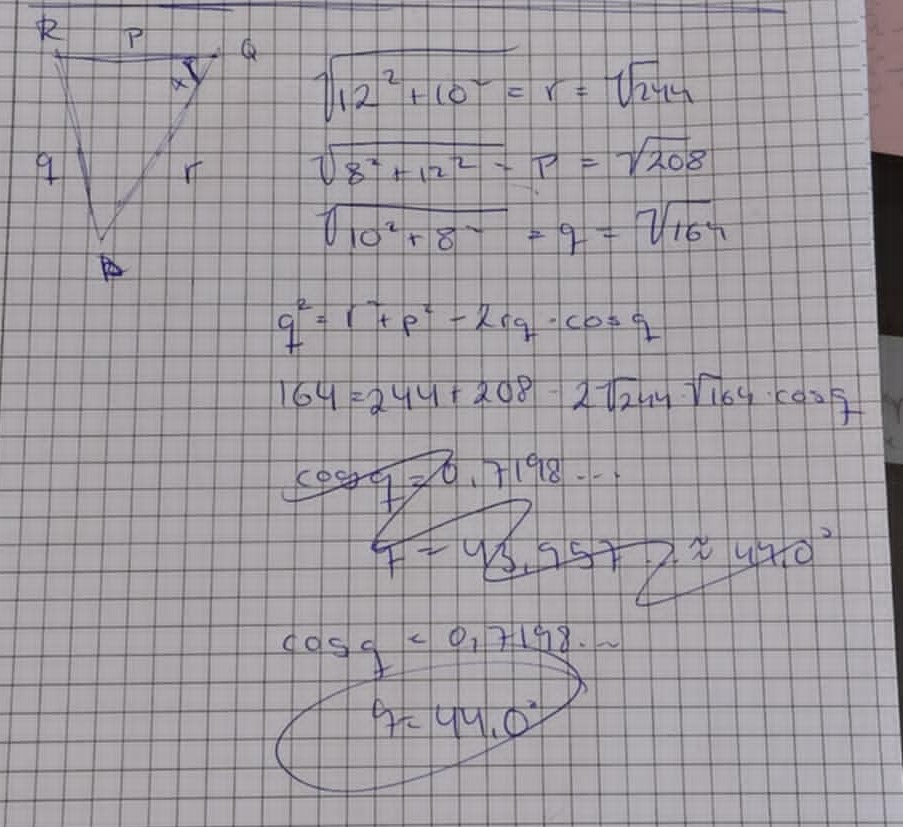 R P Q
α
q r
√12² + 10² = r = √244
√8² + 12² = P = √208
√10² + 8² = q = √164
q² = r² + p² - 2rq · cos q
164 = 244 + 208 - 2√244 · √164 · cos q
cos q = 0,7198...
q = 43,957.. ≈ 44,0°
cos q = 0,7198...
q = 44,0°